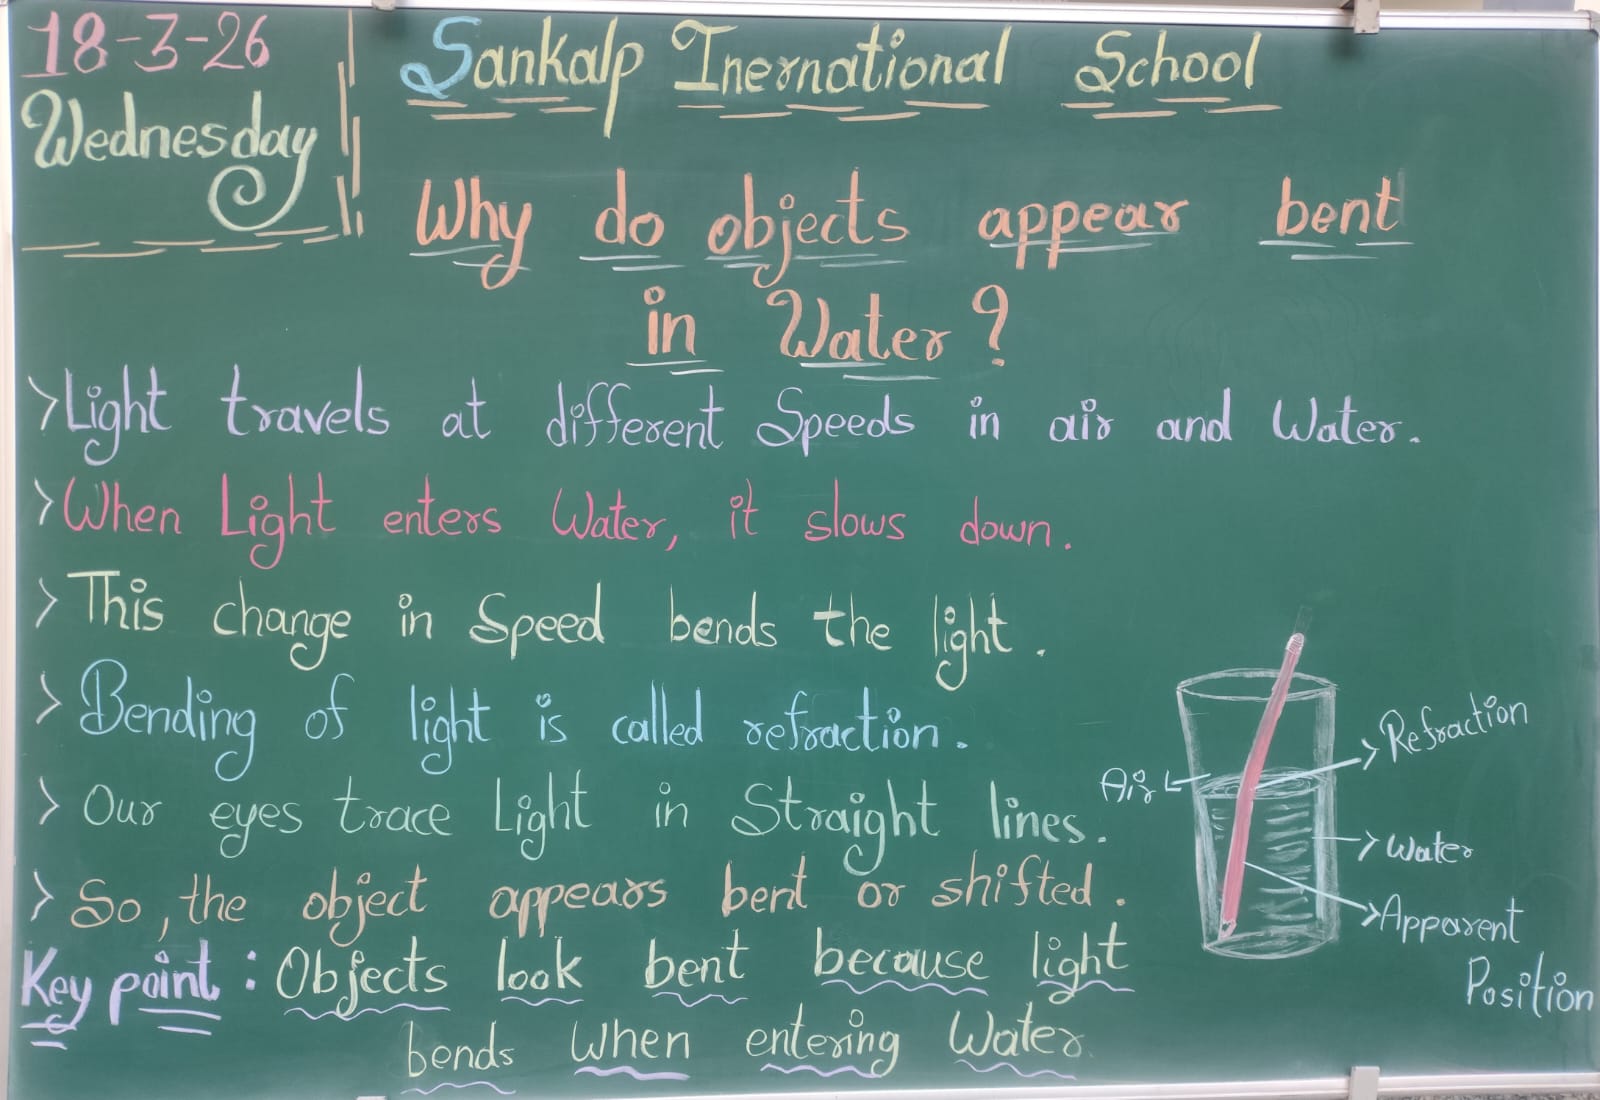 18-3-26
Wednesday
Sankalp Inernational School
Why do objects appear bent
in Water?
>Light travels at different Speeds in air and Water.
>When Light enters Water, it slows down.
>This change in Speed bends the light.
>Bending of light is called refraction.
>Our eyes trace Light in Straight lines.
>So, the object appears bent or shifted.
Key point: Objects look bent because light
bends when entering Water
Refraction
Air
Water
Apparent
Position